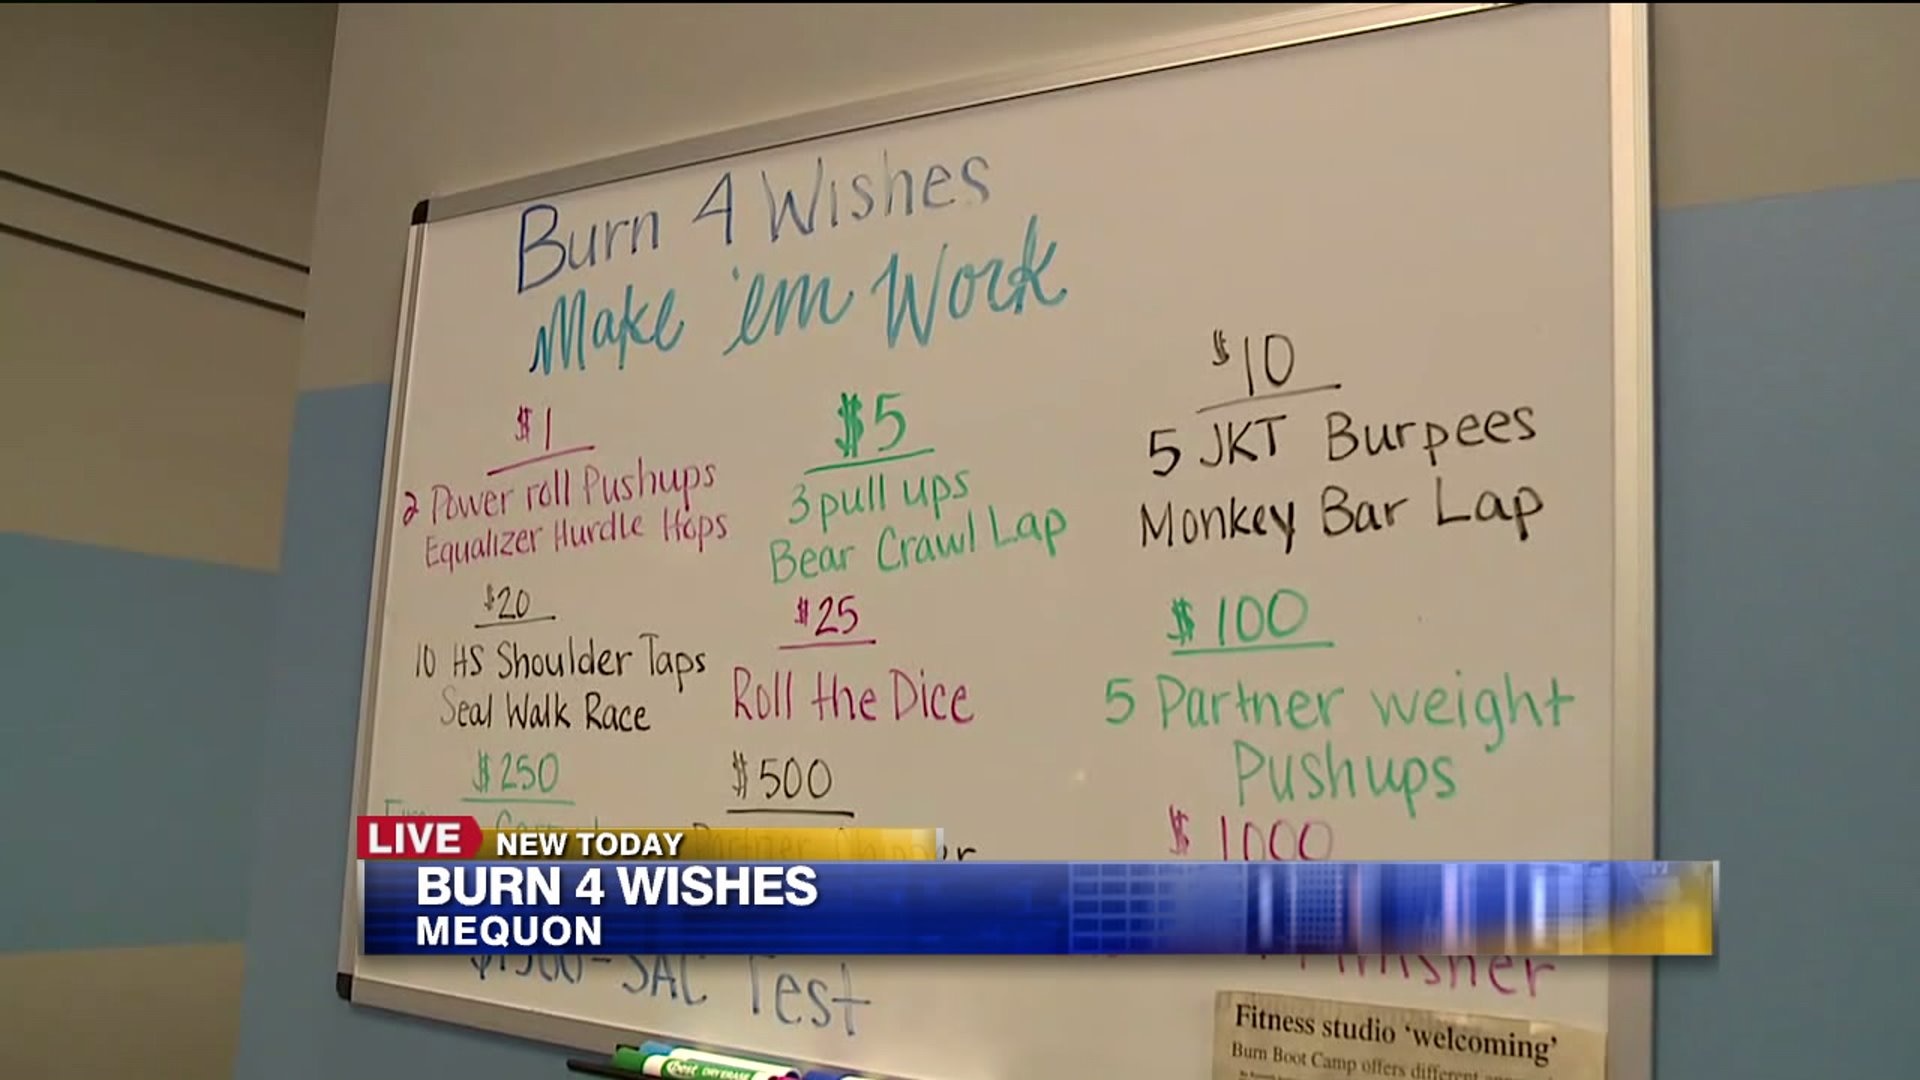 Burn 4 Wishes
Make 'em Work
$1
2 Power roll Pushups
Equalizer Hurdle Hops
$5
3 pull ups
Bear Crawl Lap
$10
5 JKT Burpees
Monkey Bar Lap
$20
10 HS Shoulder Taps
Seal Walk Race
$25
Roll the Dice
$100
5 Partner weight
Pushups
$250
$500
Partner
$1000
Finisher
$1500-SAC Test
LIVE
NEW TODAY
BURN 4 WISHES
MEQUON
Fitness studio 'welcoming'
Burn Boot Camp offers different
DRY ERASE